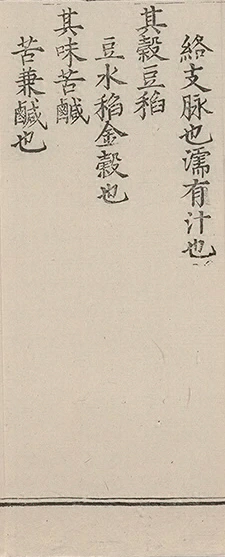 絡支脉也濡有汁也
其穀豆稻
豆水稻金穀也
其味苦鹹
苦兼鹹也